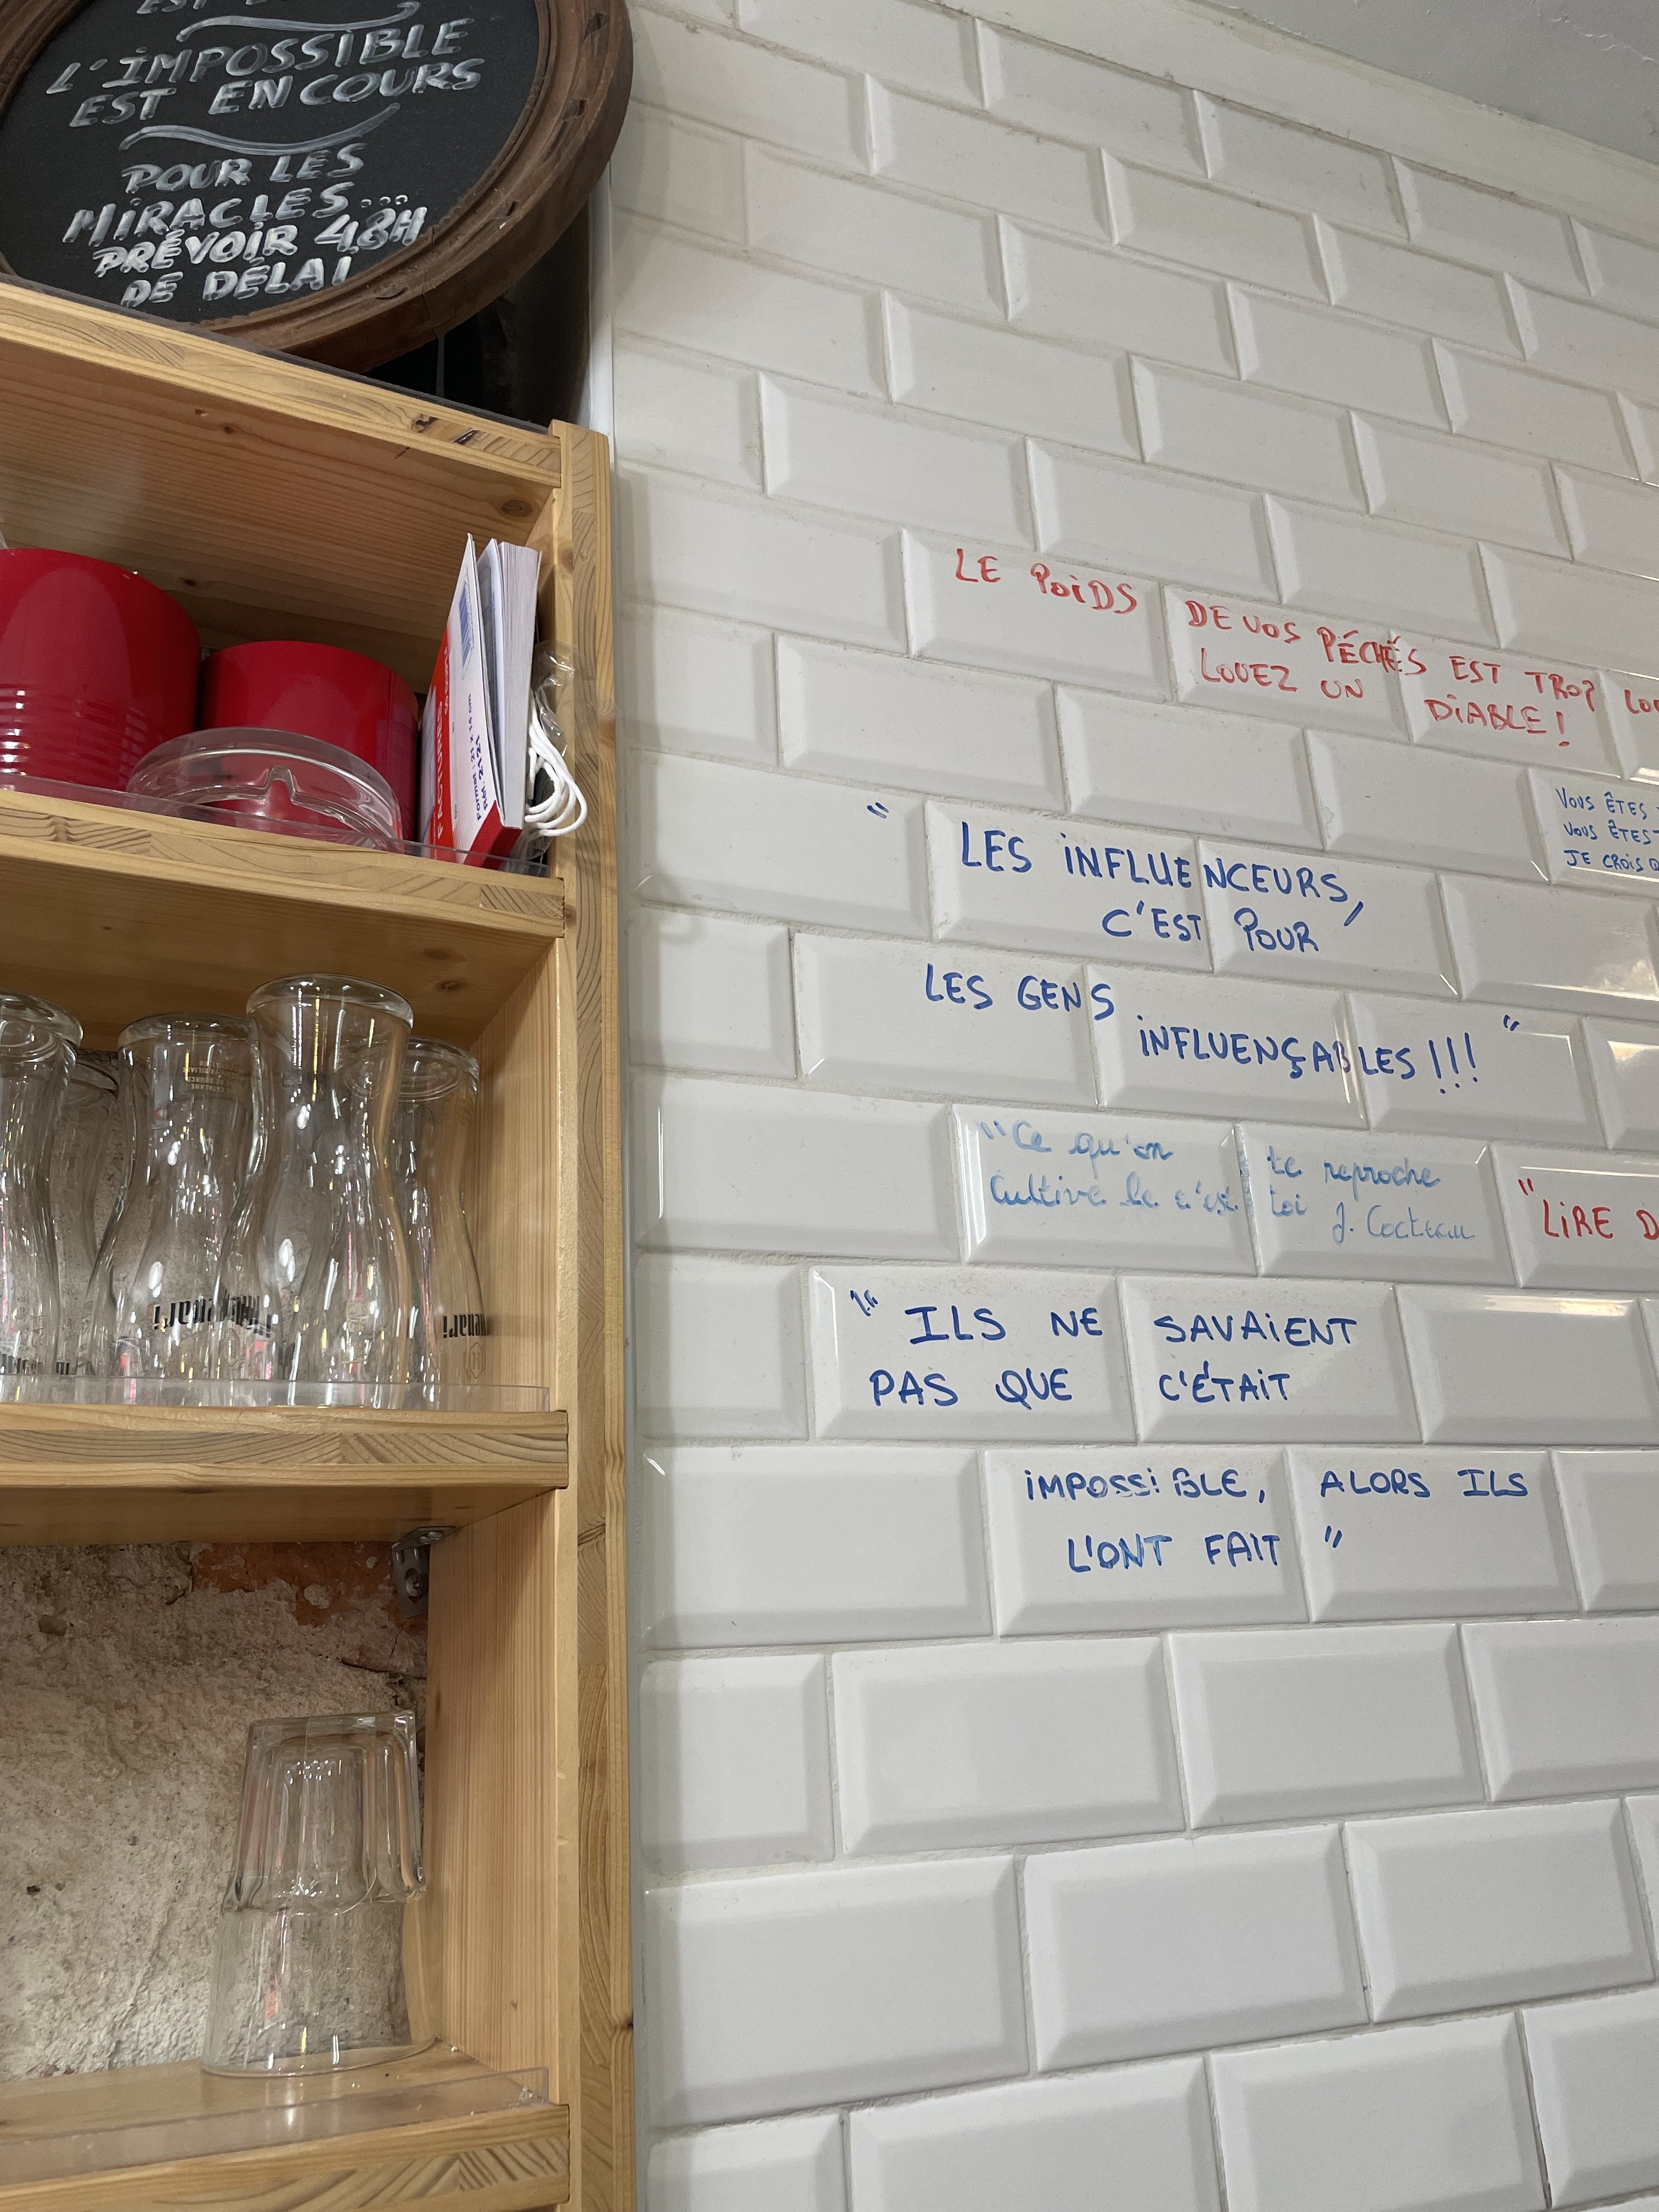 L'IMPOSSIBLE
EST EN COURS
POUR LES
MIRACLES...
PRÉVOIR 48H
DE DÉLAI
LE POIDS DE VOS PÉCHÉS EST TROP
LOUEZ UN DIABLE !
VOUS ÊTES
VOUS ÊTES
JE CROIS
" LES INFLUENCEURS,
C'EST POUR
LES GENS
INFLUENÇABLES !!! "
"Ce qu'on te reproche
Cultive le c'est toi
J. Cocteau
"LIRE
" ILS NE SAVAIENT
PAS QUE C'ÉTAIT
IMPOSSIBLE, ALORS ILS
L'ONT FAIT "
Format : 21 x 14 cm